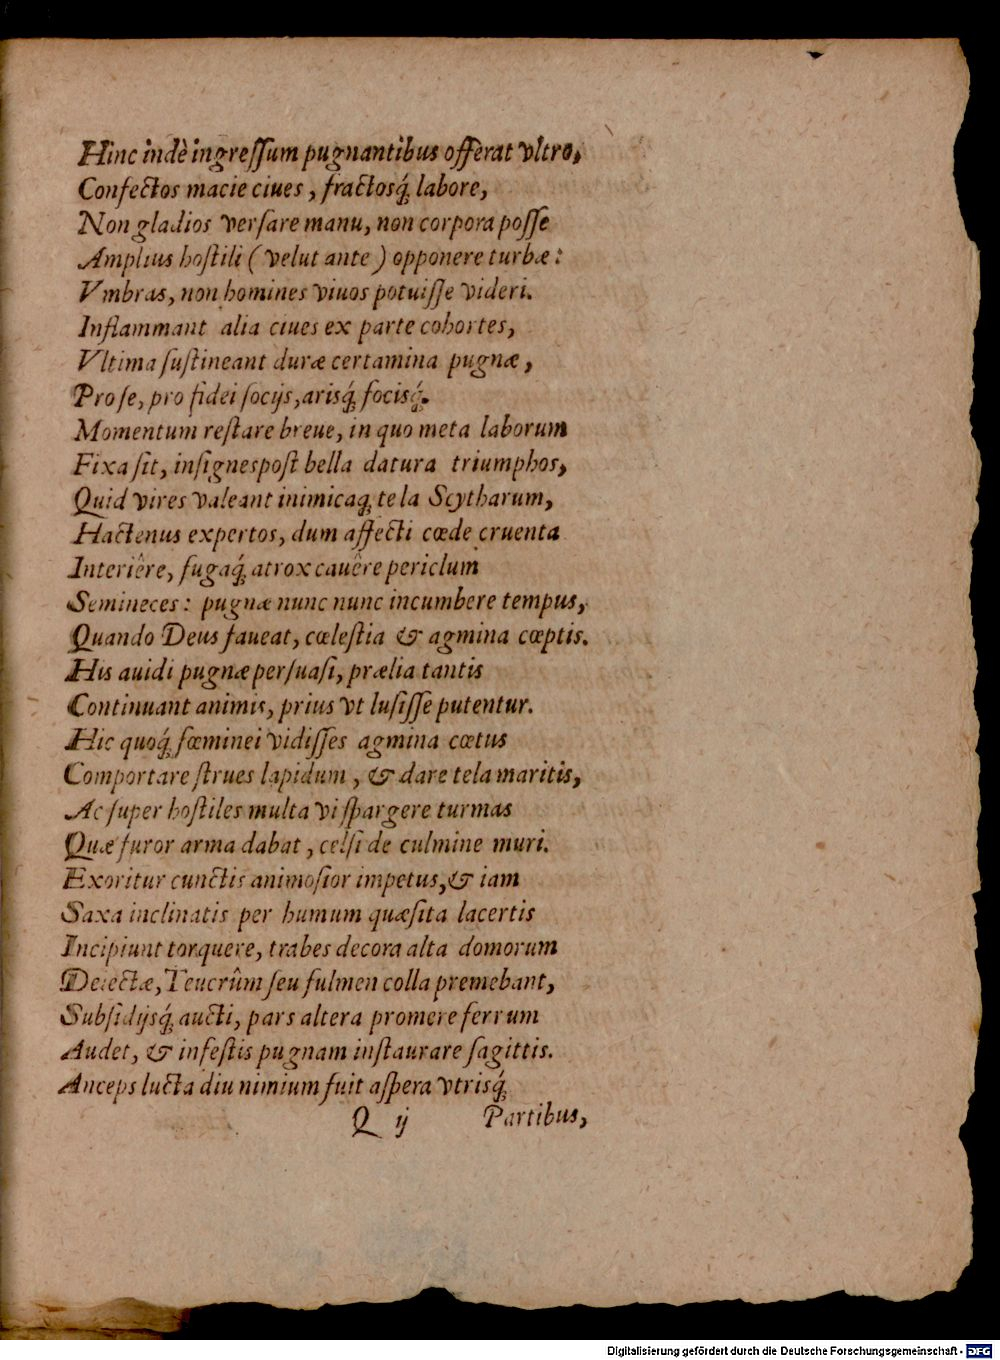 Hinc indè ingreſſum pugnantibus offerat vltro,
Confectos macie ciues, fractosq́; labore,
Non gladios verſare manu, non corpora poſſe
Amplius hoſtili (velut ante) opponere turbæ:
Vmbras, non homines viuos potuiſſe videri.
Inflammant alia ciues ex parte cohortes,
Vltima ſuſtineant duræ certamina pugnæ,
Pro ſe, pro fidei ſocijs, arisq́; focisq́;.
Momentum reſtare breue, in quo meta laborum
Fixa ſit, inſignespoſt bella datura triumphos,
Quid vires valeant inimicaq; tela Scytharum,
Hactenus expertos, dum affecti cœde cruenta
Interiêre, fugaq́; atrox cauêre periclum
Semineces: pugnæ nunc nunc incumbere tempus,
Quando Deus faueat, cœleſtia & agmina cœptis.
His auidi pugnæ perſuaſi, prælia tantis
Continuant animis, prius vt luſiſſe putentur.
Hic quoq́; fœminei vidiſſes agmina cœtus
Comportare ſtrues lapidum, & dare tela maritis,
Ac ſuper hoſtiles multa vi ſpargere turmas
Quæ furor arma dabat, celſi de culmine muri.
Exoritur cunctis animoſior impetus, & iam
Saxa inclinatis per humum quæſita lacertis
Incipiunt torquere, trabes decora alta domorum
Deiectæ, Teucrûm ſeu fulmen colla premebant,
Subſidijsq́; aucti, pars altera promere ferrum
Audet, & infeſtis pugnam inſtaurare ſagittis.
Anceps lucta diu nimium fuit aſpera vtrisq́;
Q ij Partibus,
Digitalisierung gefördert durch die Deutsche Forschungsgemeinschaft - DFG